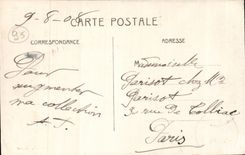 9-8-08
CARTE POSTALE
85
CORRESPONDANCE
ADRESSE
Pour
augmenter
ma collection
A.T.
Mademoiselle
Perisot chez Mr
Perisot
2 rue de Tolbiac
Paris